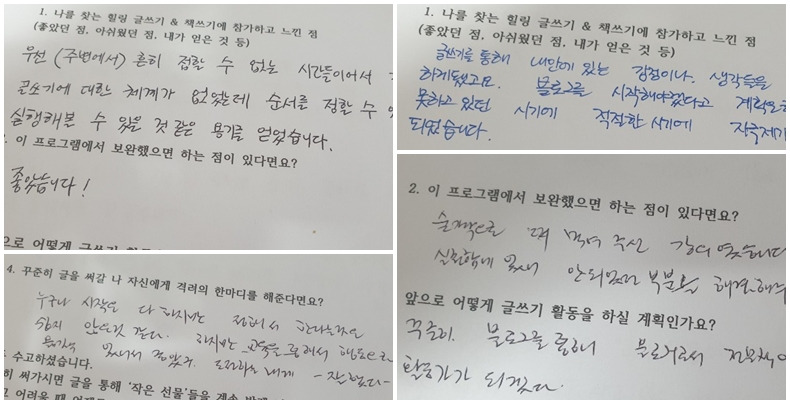 1. 나를 찾는 힐링 글쓰기 & 책쓰기에 참가하고 느낀 점
(좋았던 점, 아쉬웠던 점, 내가 얻은 것 등)
우선 (주변에서) 흔히 접할 수 없는 시간들이어서
글쓰기에 대한 체계가 없었는데 순서를 정할 수
실행해볼 수 있을 것 같은 용기를 얻었습니다.
이 프로그램에서 보완했으면 하는 점이 있다면요?
좋았습니다!
으로 어떻게 글쓰기
1. 나를 찾는 힐링 글쓰기 & 책쓰기에 참가하고 느낀 점
(좋았던 점, 아쉬웠던 점, 내가 얻은 것 등)
글쓰기를 통해 내안에 있는 감정이나, 생각들을
하게됐고요. 블로그를 시작해야겠다고 계획만
못하고 있던 시기에 적절한 시기에 자극제가
되었습니다.
4. 꾸준히 글을 써갈 나 자신에게 격려의 한마디를 해준다면요?
누구나 시작은 다 하지만 정해서 한다는것은
쉽지 않은것 같다. 하지만 교육을 통해서 행동으로
용기를 도전하는 내게 -잘했다-
수고하셨습니다.
히 써가시면 글을 통해 '작은 선물'들을 계속 받게
2. 이 프로그램에서 보완했으면 하는 점이 있다면요?
강의 였습니다
안되었던 부분을 해결해주
앞으로 어떻게 글쓰기 활동을 하실 계획인가요?
꾸준히. 블로그를 통해 블로거로서
활동가가 되겠다.